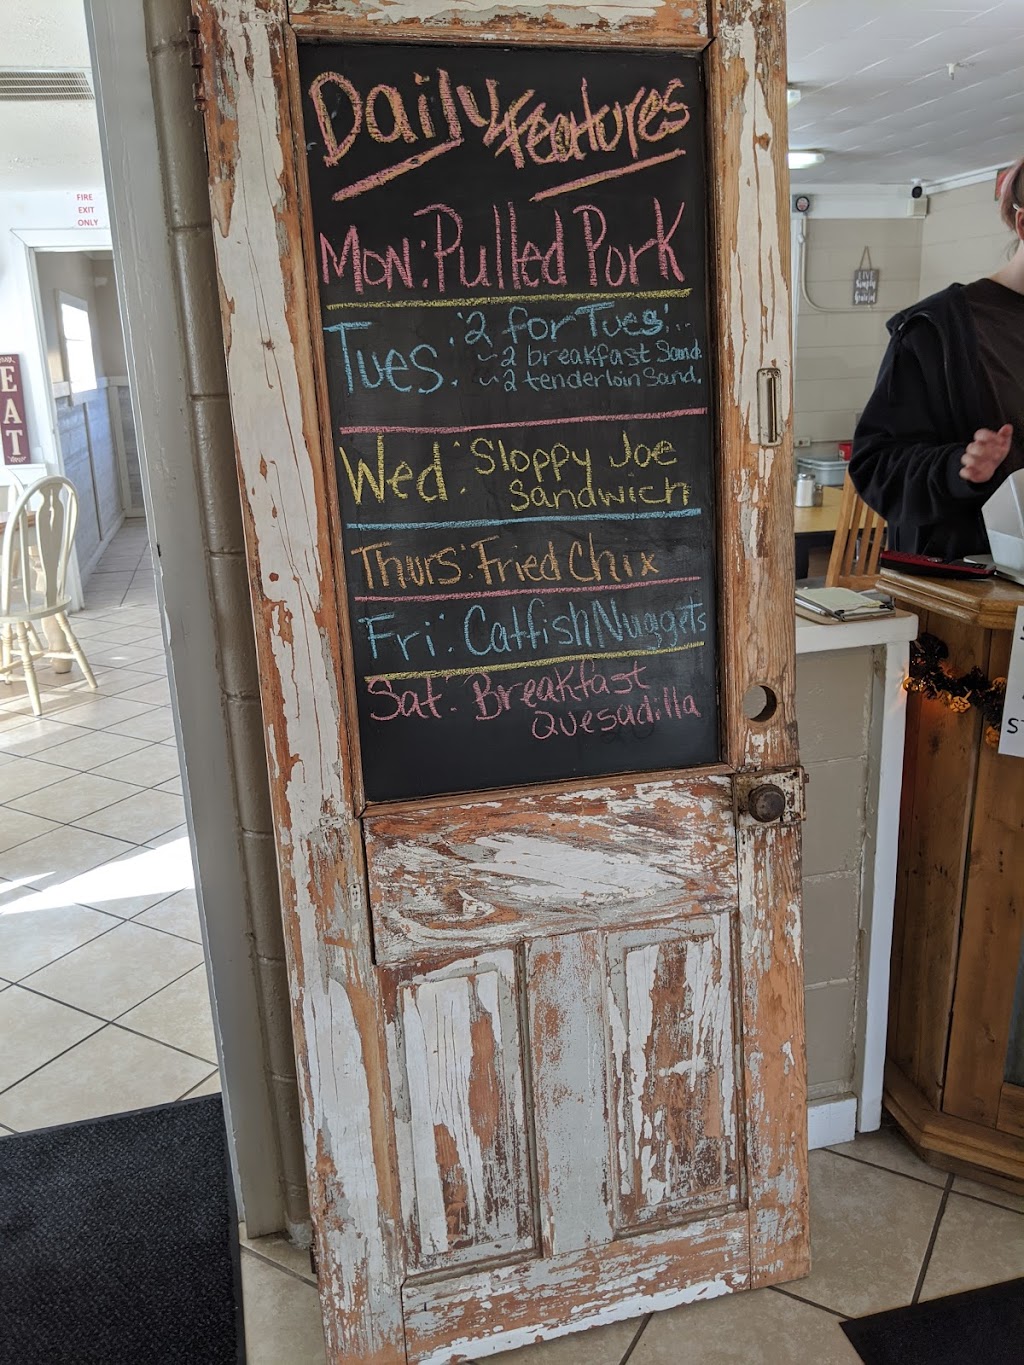 Daily Features
Mon: Pulled Pork
Tues: '2 for Tues'...
~2 breakfast Sand.
~2 tenderloin Sand.
Wed: Sloppy Joe
Sandwich
Thurs: Fried Chix
Fri: Catfish Nuggets
Sat: Breakfast
Quesadilla
FIRE
EXIT
ONLY
EAT